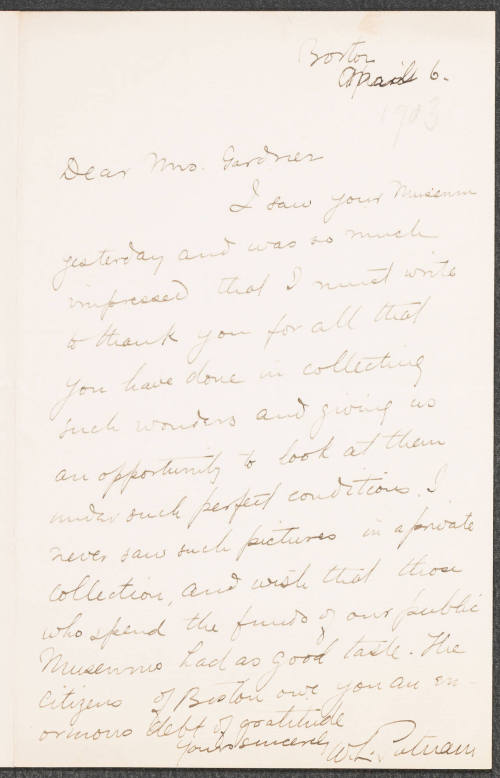 Boston
April 6.
1903
Dear Mrs. Gardner
I saw your Museum
yesterday and was so much
impressed that I must write
to thank you for all that
you have done in collecting
such wonders and giving us
an opportunity to look at them
under such perfect conditions. I
never saw such pictures in a private
collection, and wish that those
who spend the funds of our public
Museums had as good taste. The
citizens of Boston owe you an en-
ormous debt of gratitude
Yours sincerely
W L. Putnam